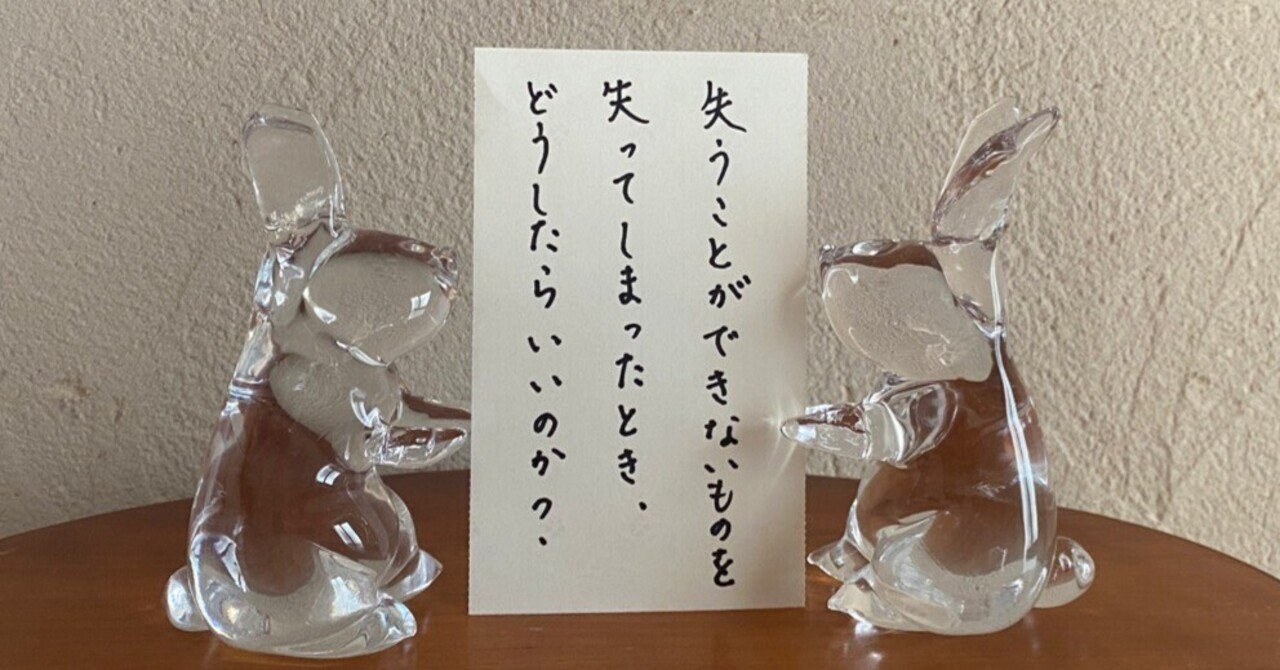 失うことができないものを
失ってしまったとき、
どうしたらいいのか?